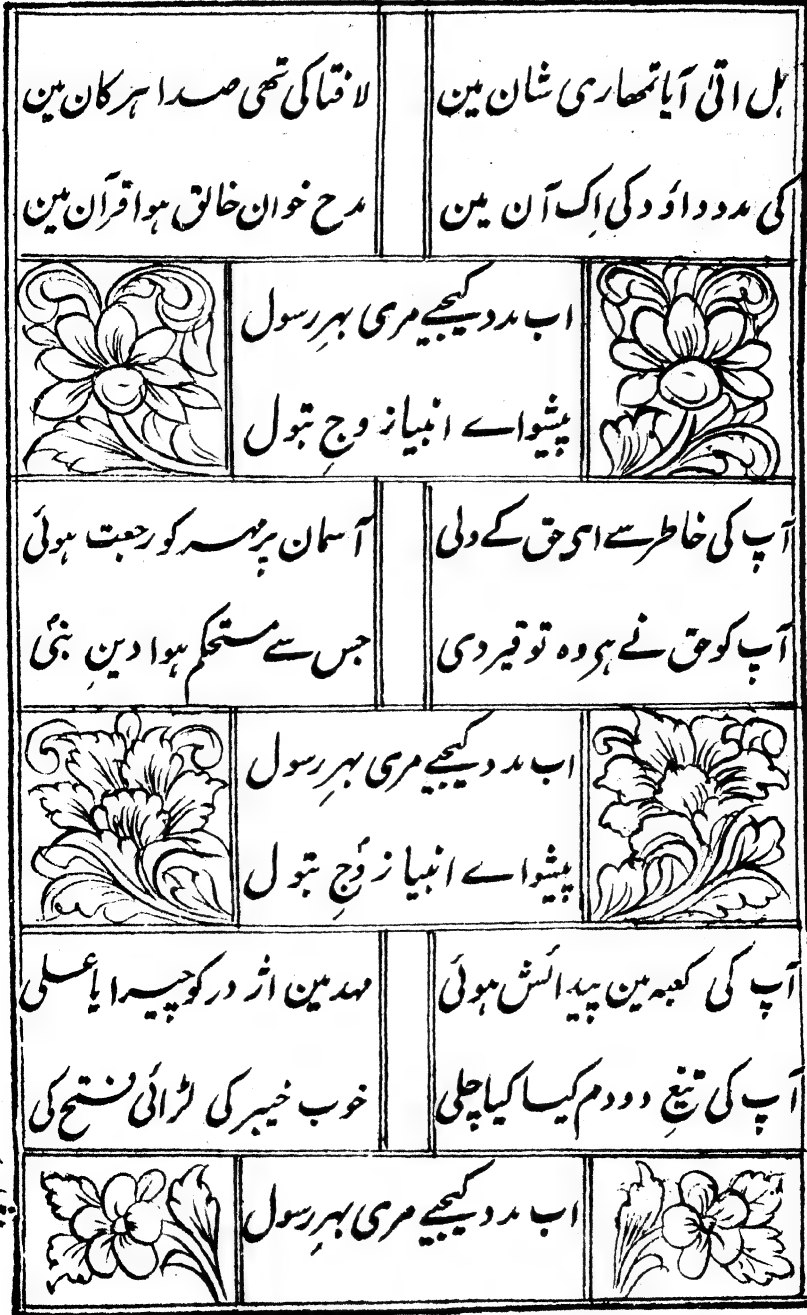 ہل اتیٰ آیا تمھاری شان مین
لا فتا کی تھی صدا ہر کان مین
کی مدد داؤد کی اِک آن مین
مدح خوان خالق ہوا قرآن مین
اب مدد کیجیے مری بہرِ رسول
پیشواے انبیا زوجِ بتول
آپ کی خاطر سے اے حق کے ولی
آسمان پر مہر کو رجعت ہوئی
آپ کو حق نے ہر وہ توقیر دی
جس سے مستحکم ہوا دینِ نبیؐ
اب مدد کیجیے مری بہرِ رسول
پیشواے انبیا زوجِ بتول
آپ کی کعبہ مین پیدائش ہوئی
مہد مین اژدر کو چیرا یا علی
آپ کی تیغِ دو دم کیا کیا چلی
خوب خیبر کی لڑائی فتح کی
اب مدد کیجیے مری بہرِ رسول